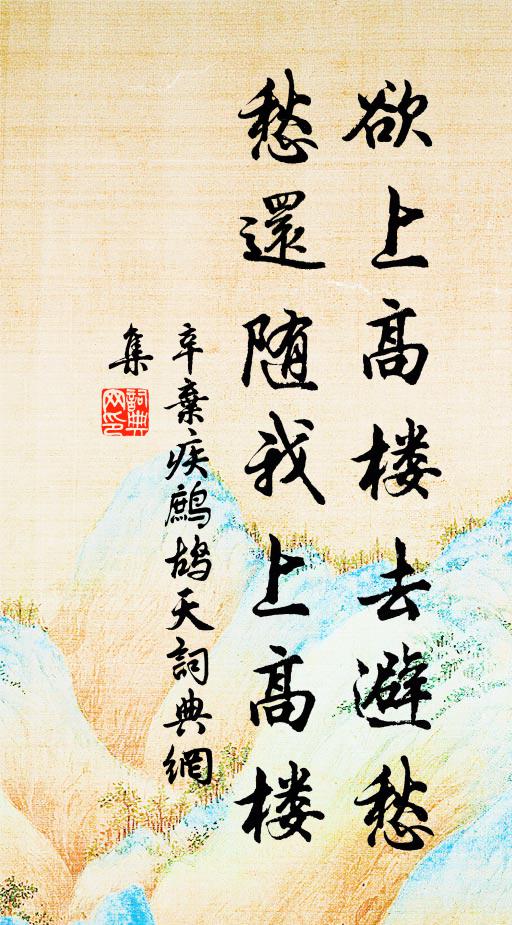 欲上高楼去避愁
愁還随我上高楼
辛棄疾鷓鴣天詞典網
集
詞典
网印